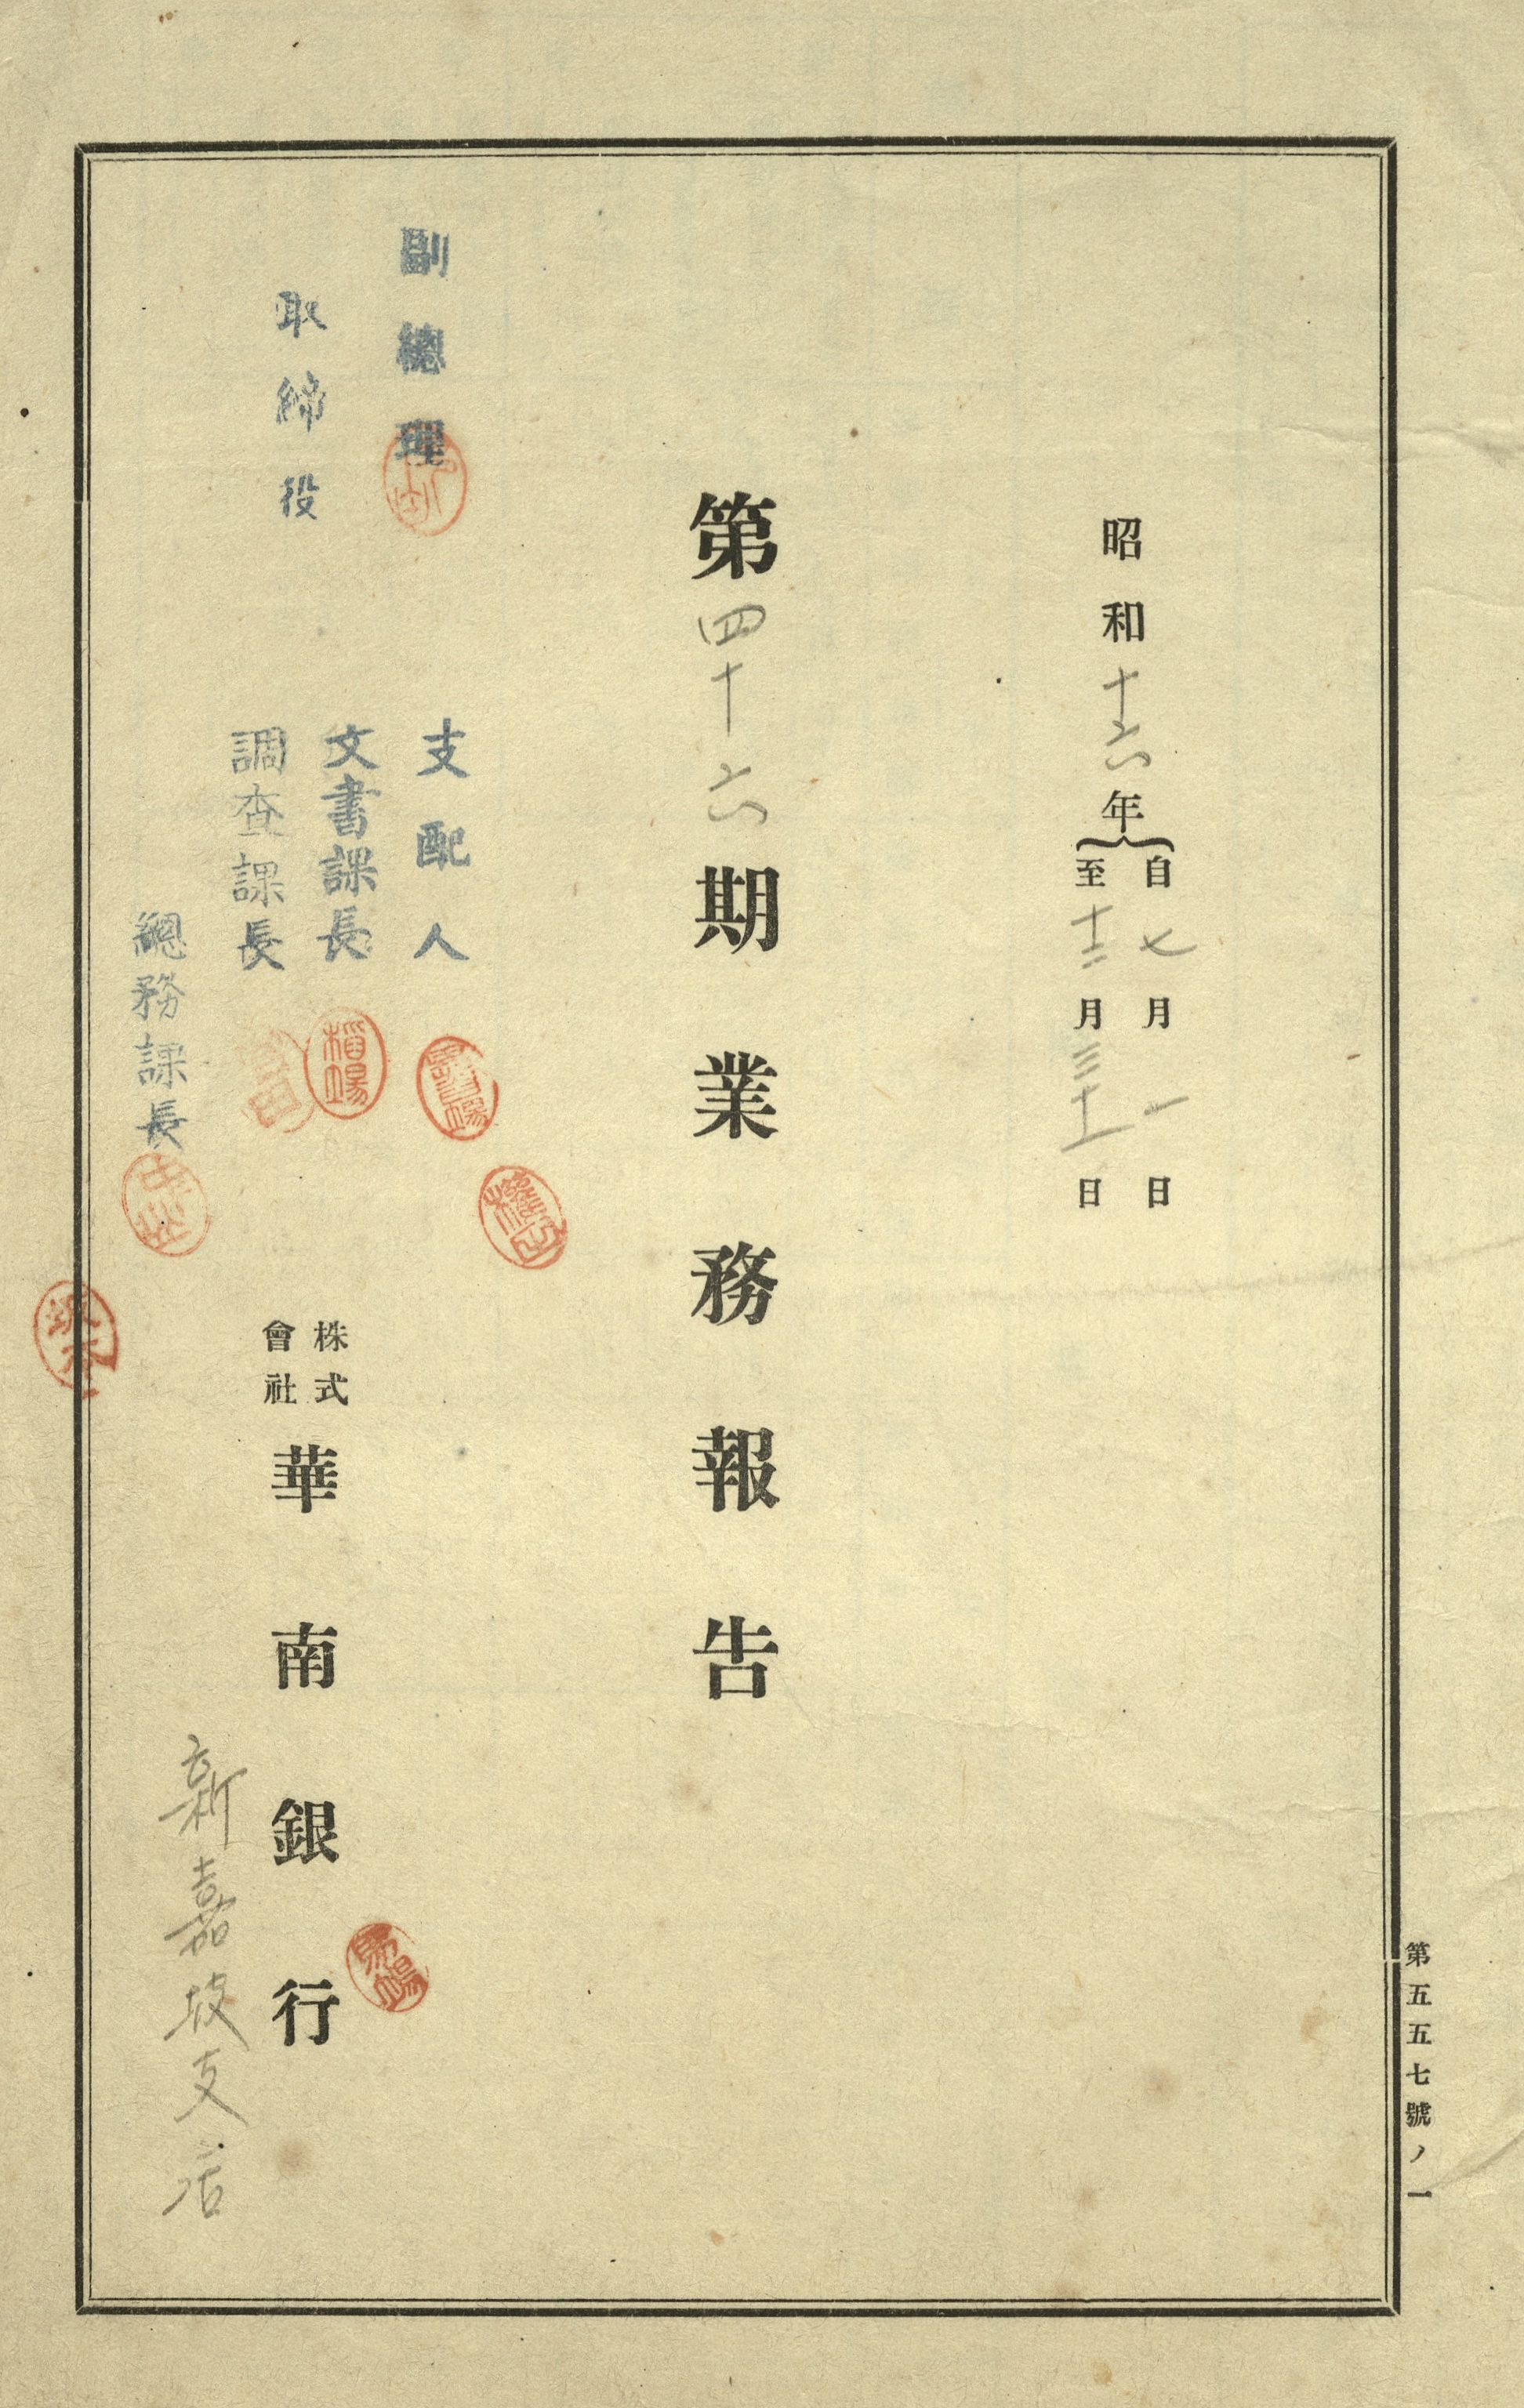 昭和十六年
自七月一日
至十二月三十一日
第四十六期業務報告
副總理
取締役
支配人
文書課長
調查課長
總務課長
株式
會社
華南銀行
新嘉坡支店
第五五七號ノ一
稻場